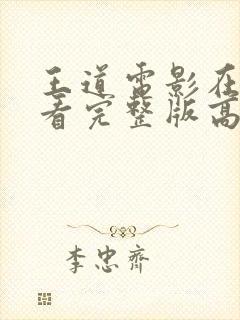 王道电影在
看完整版高
李忠齐